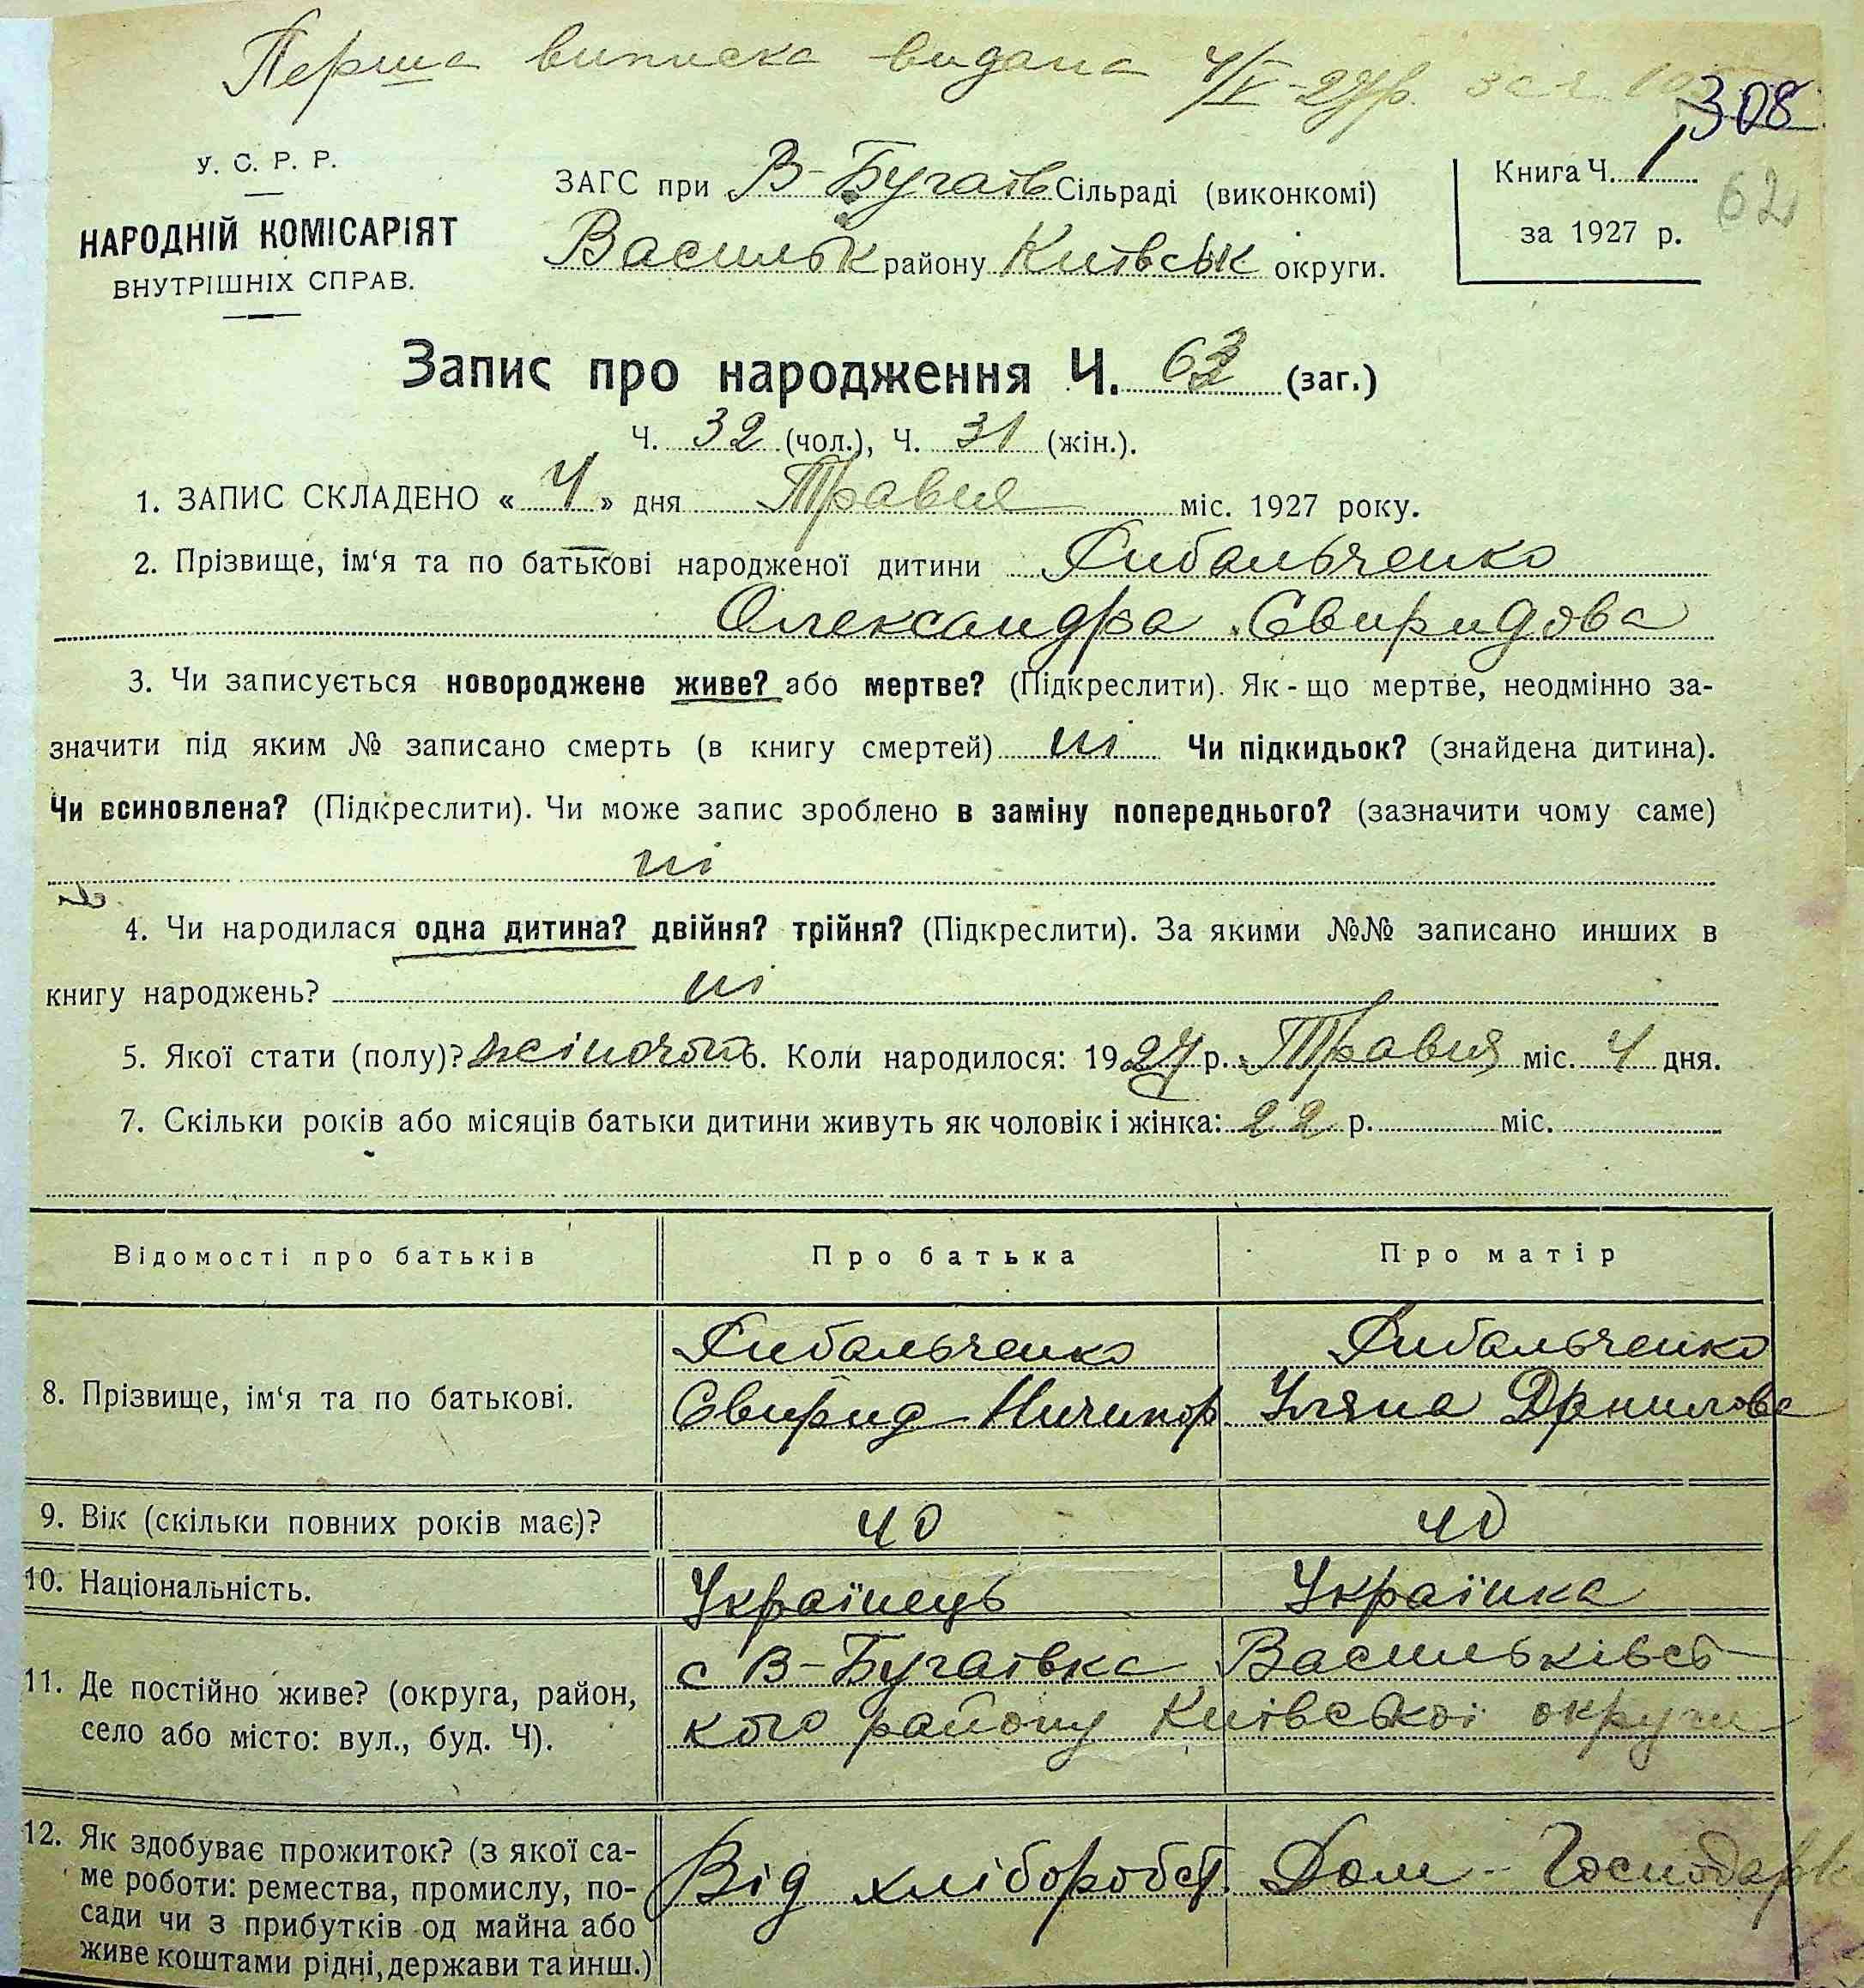 Перша виписка видана 4/V-27р. за №
308
У. С. Р. Р.
НАРОДНІЙ КОМІСАРІЯТ
ВНУТРІШНІХ СПРАВ.
ЗАГС при В-Бугаїв Сільраді (виконкомі)
Васильк району Київськ округи.
Книга Ч. 1
62
за 1927 р.
Запис про народження Ч. 63 (заг.)
Ч. 32 (чол.), Ч. 31 (жін.).
1. ЗАПИС СКЛАДЕНО « 4 » дня Травня міс. 1927 року.
2. Прізвище, ім‘я та по батькові народженої дитини Кибальченко
Олександра Свиридова
3. Чи записується новороджене живе? або мертве? (Підкреслити). Як-що мертве, неодмінно за-
значити під яким № записано смерть (в книгу смертей) ні Чи підкидьок? (знайдена дитина).
Чи всиновлена? (Підкреслити). Чи може запис зроблено в заміну попереднього? (зазначити чому саме)
ні
4. Чи народилася одна дитина? двійня? трійня? (Підкреслити). За якими №№ записано инших в
книгу народжень? ні
5. Якої стати (полу)? жіночої 6. Коли народилося: 1927 р. Травня міс. 4 дня.
7. Скільки років або місяців батьки дитини живуть як чоловік і жінка: 22 р. міс.
Відомості про батьків Про батька Про матір
8. Прізвище, ім‘я та по батькові.
Кибальченко
Свирид Ничипор
Кибальченко
Уляна Данилова
9. Вік (скільки повних років має)? 40 40
10. Національність. Українець Українка
11. Де постійно живе? (округа, район,
село або місто: вул., буд. Ч).
с В-Бугаївка Васильківсь
кого району Київської округи
12. Як здобуває прожиток? (з якої са-
ме роботи: ремества, промислу, по-
сади чи з прибутків од майна або
живе коштами рідні, держави та инш.)
Від хліборобст. Дом-Господарк